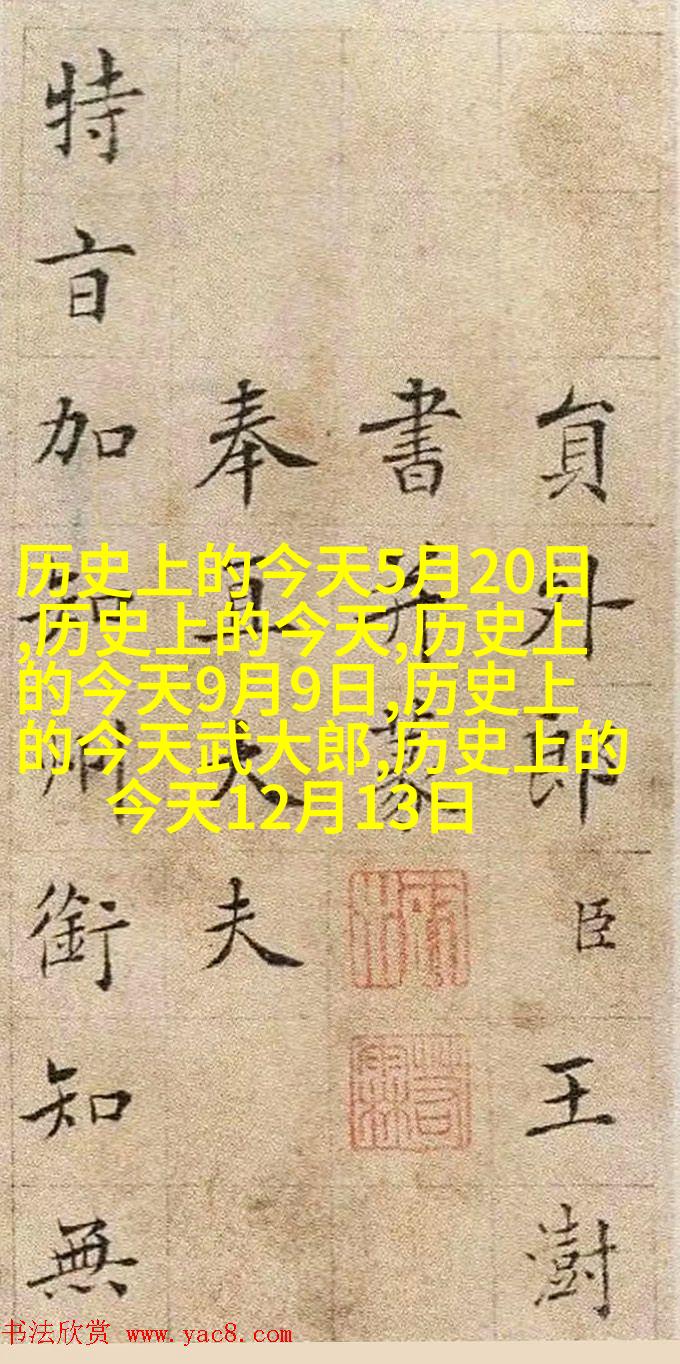 員外郎臣王澍
書并篆
奉直大夫
特旨加知州銜知無
历史上的今天5月20日
,历史上的今天,历史上
的今天9月9日,历史上
的今天武大郎,历史上的
今天12月13日
书法欣赏 www.yac8.com